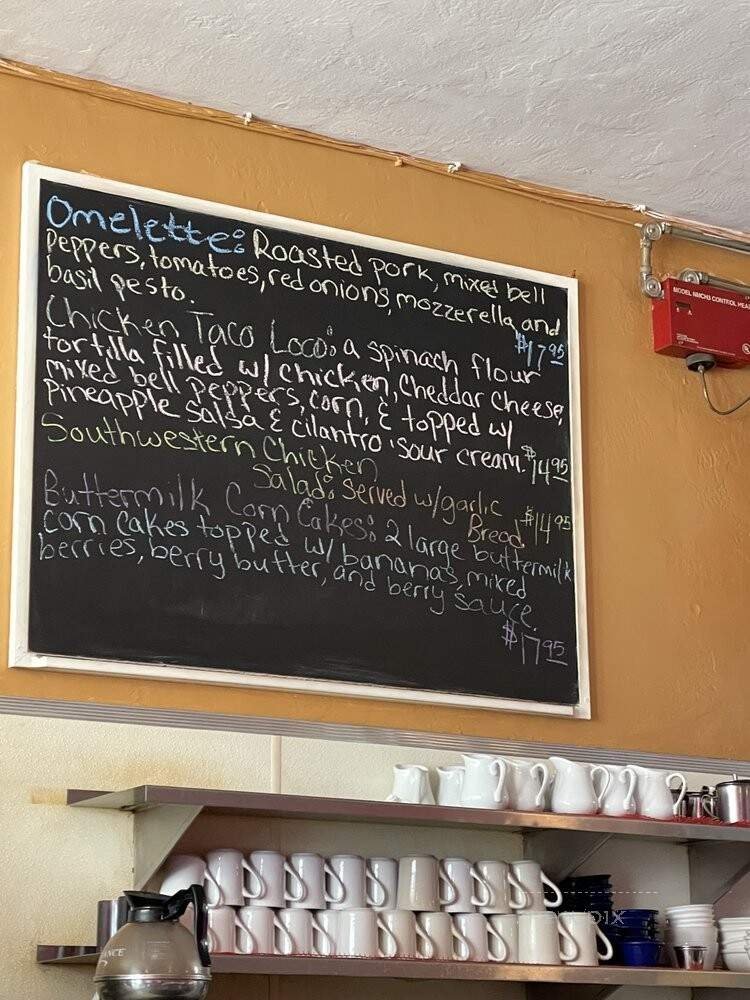 Omelette: Roasted pork, mixed bell
peppers, tomatoes, red onions, mozzerella, and
basil pesto.
$17.95
Chicken Taco Loco: a spinach flour
tortilla filled w/ chicken, Cheddar Cheese,
mixed bell peppers, corn, & topped w/
Pineapple Salsa & cilantro sour cream. $14.95
Southwestern Chicken
Salad: served w/garlic
Bread $14.95
Buttermilk Corn Cakes: 2 large buttermilk
corn cakes topped w/ bananas, mixed
berries, berry butter, and berry sauce.
$17.95
MODEL NMCH3 CONTROL HEA